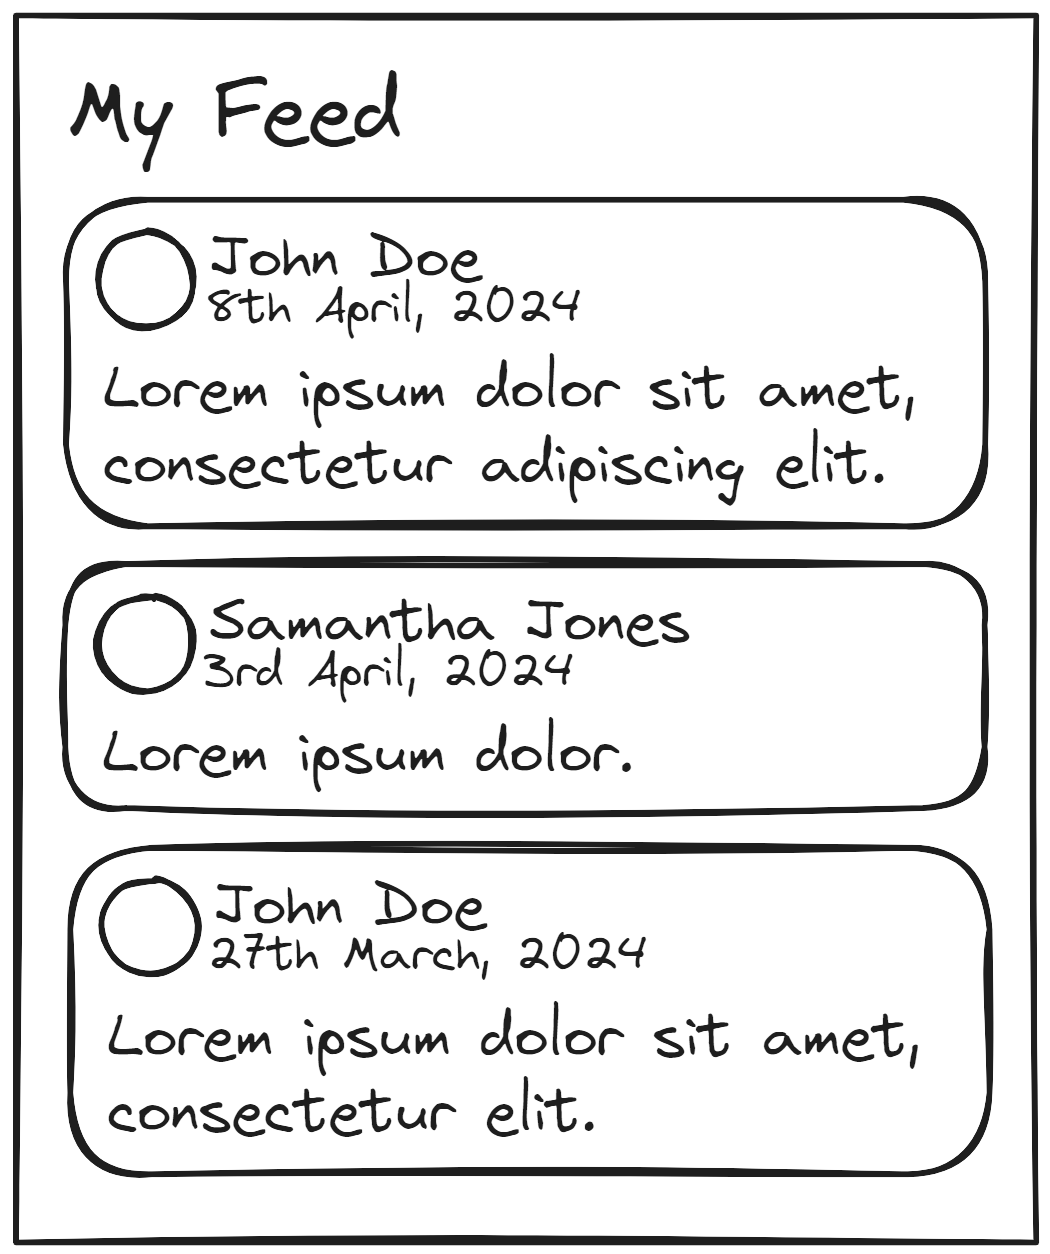 My Feed
John Doe
8th April, 2024
Lorem ipsum dolor sit amet,
consectetur adipiscing elit.
Samantha Jones
3rd April, 2024
Lorem ipsum dolor.
John Doe
27th March, 2024
Lorem ipsum dolor sit amet,
consectetur elit.